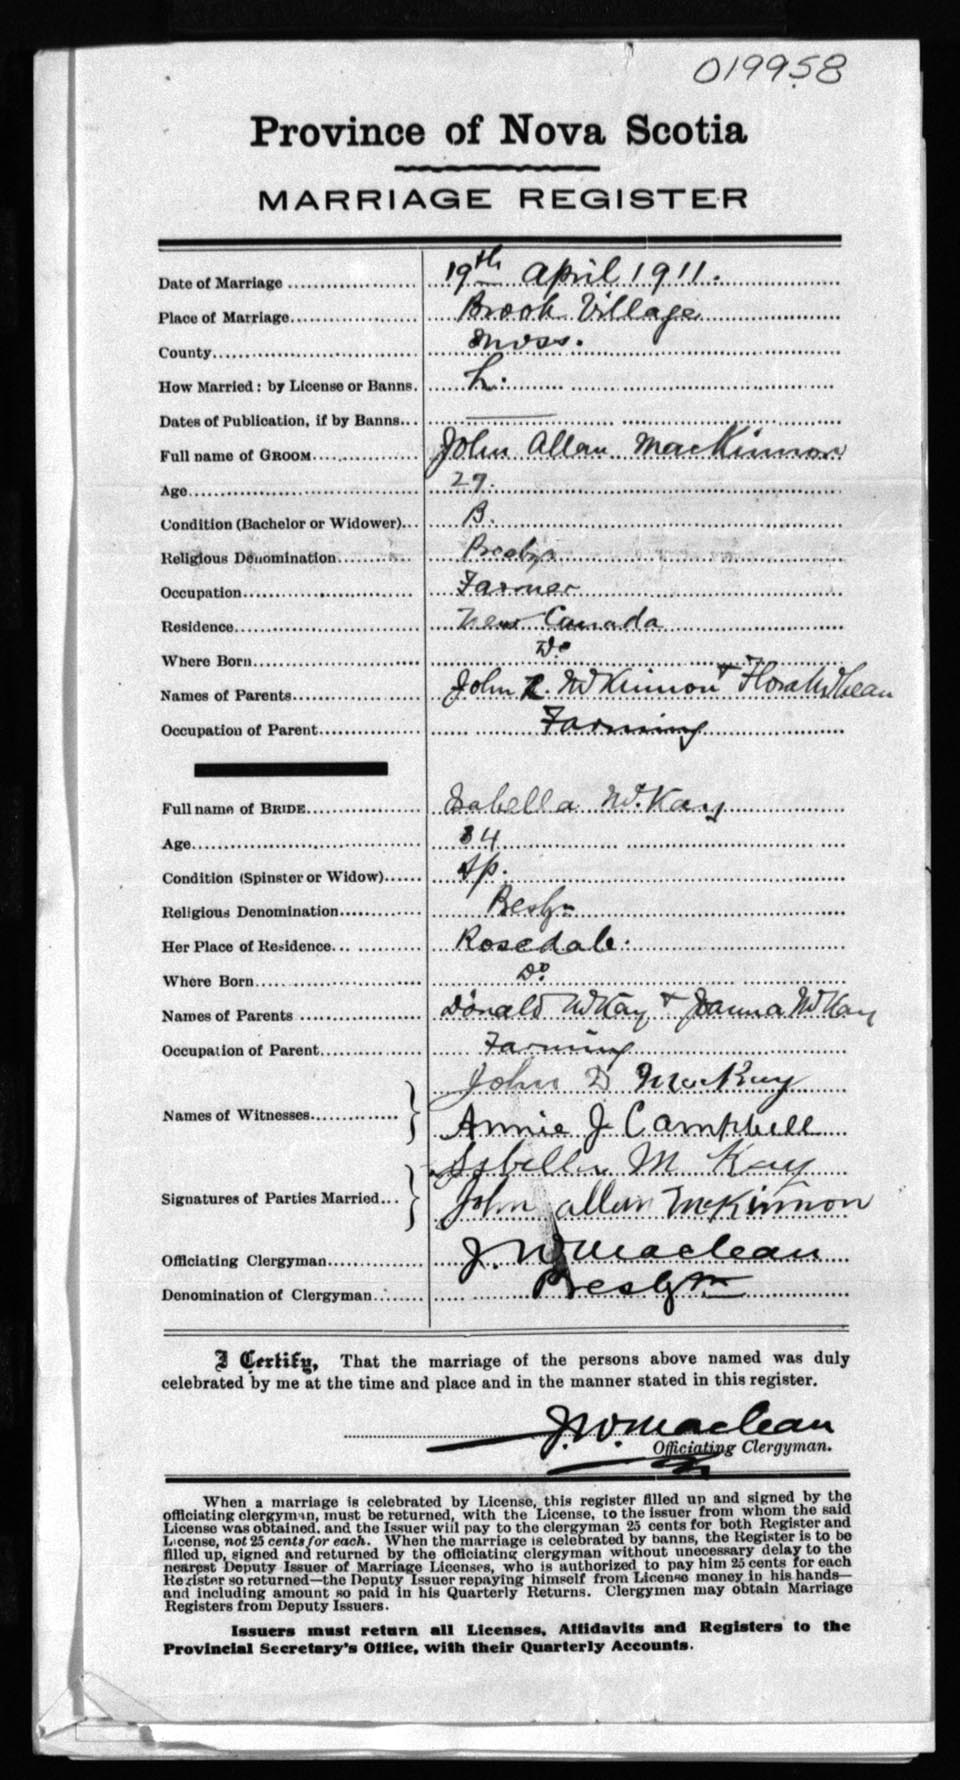 019958
Province of Nova Scotia
MARRIAGE REGISTER
Date of Marriage 19th April 1911.
Place of Marriage Brook Village
County Invss.
How Married: by License or Banns. L.
Dates of Publication, if by Banns
Full name of GROOM John Allan MacKinnon
Age 27.
Condition (Bachelor or Widower) B.
Religious Denomination
Occupation Farmer
Residence New Canada
Where Born Do
Names of Parents John McKinnon + Flora McLean
Occupation of Parent Farming
Full name of BRIDE Isabella McKay
Age 34
Condition (Spinster or Widow) Sp.
Religious Denomination
Her Place of Residence Rosedale.
Where Born Do
Names of Parents Donald McKay + Joanna McKay
Occupation of Parent Farming
John D MacKay
Names of Witnesses
Annie J Campbell
Isbella M Kay
Signatures of Parties Married
John allan McKinnon
Officiating Clergyman J. W Maclean
Denomination of Clergyman
I Certify, That the marriage of the persons above named was duly
celebrated by me at the time and place and in the manner stated in this register.
J. W. Maclean
Officiating Clergyman.
When a marriage is celebrated by License, this register filled up and signed by the
officiating clergyman, must be returned, with the License, to the issuer from whom the said
License was obtained, and the Issuer will pay to the clergyman 25 cents for both Register and
License, not 25 cents for each. When the marriage is celebrated by banns, the Register is to be
filled up, signed and returned by the officiating clergyman without unnecessary delay to the
nearest Deputy Issuer of Marriage Licenses, who is authorized to pay him 25 cents for each
Register so returned—the Deputy Issuer repaying himself from License money in his hands—
and including amount so paid in his Quarterly Returns. Clergymen may obtain Marriage
Registers from Deputy Issuers.
Issuers must return all Licenses, Affidavits and Registers to the
Provincial Secretary's Office, with their Quarterly Accounts.